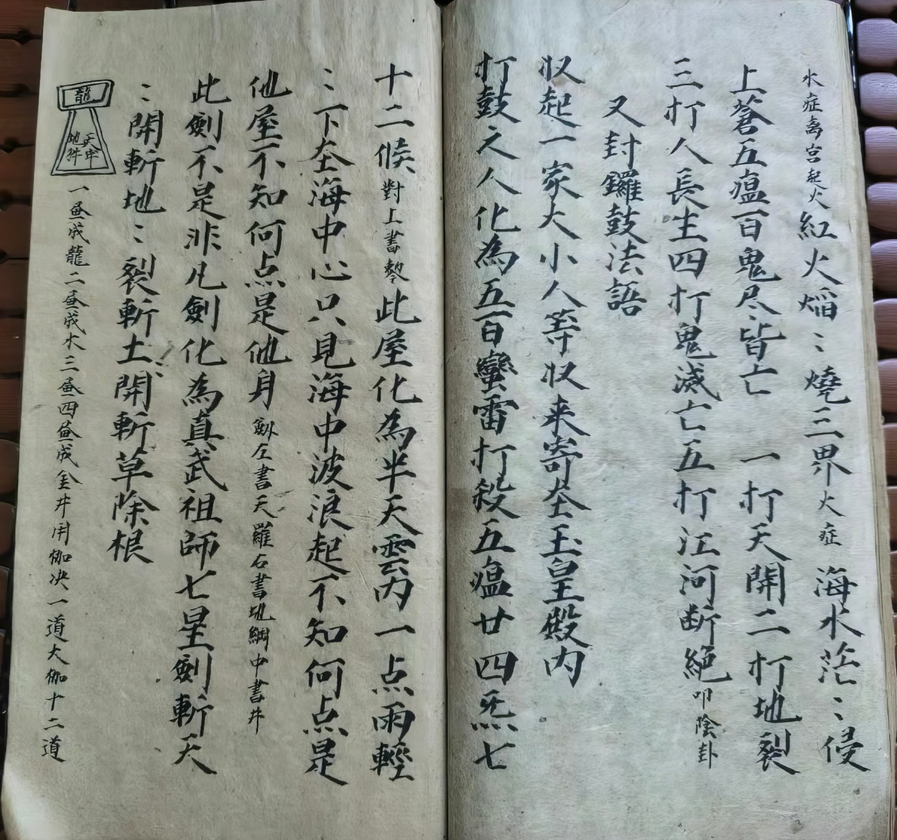 水症离宮起火紅火焰〻燒三界火症海水茫〻侵
上蒼五瘟百鬼尽〻皆亡一打天開二打地裂
三打人長生四打鬼滅亡五打江河断絕叩陰卦
又封鑼鼓法語
収起一家大小人等収来寄在玉皇殿内
打鼓之人化為五百蠻雷打殺五瘟廿四炁七
十二候對上書勅此屋化為半天雲内一点雨輕
〻下在海中心只見海中波浪起不知何点是
他屋不知何点是他身劍左書天羅右書地綱中書井
此劍不是非凡劍化為真武祖師七星劍斬天
〻開斬地〻裂斬土開斬草除根
龍
天牢
地井
一畫成龍二畫成水三畫四畫成金井用伽决一道大伽十二道